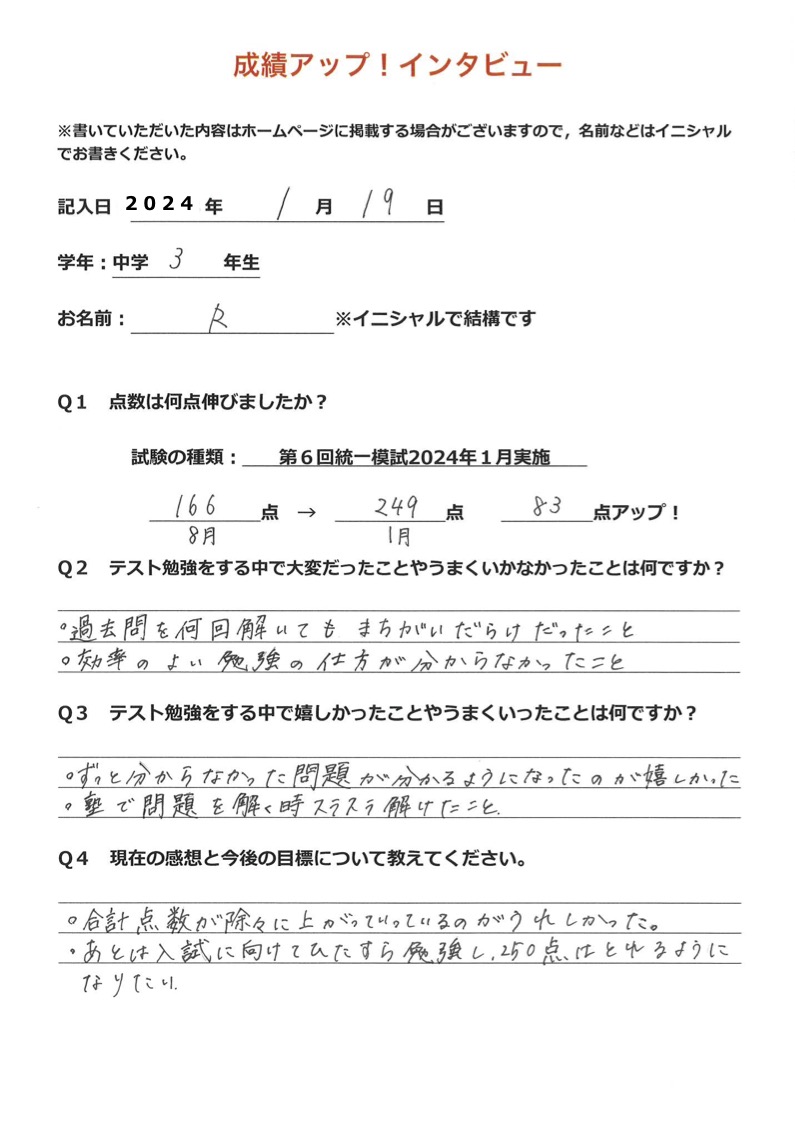 成績アップ！インタビュー
※書いていただいた内容はホームページに掲載する場合がございますので，名前などはイニシャル
でお書きください。
記入日 2024 年 1 月 19 日
学年：中学 3 年生
お名前： R ※イニシャルで結構です
Q１ 点数は何点伸びましたか？
試験の種類： 第６回統一模試2024年１月実施
166 点 → 249 点 83 点アップ！
8月 1月
Q２ テスト勉強をする中で大変だったことやうまくいかなかったことは何ですか？
○過去問を何回解いてもまちがいだらけだったこと
○効率のよい勉強の仕方が分からなかったこと
Q３ テスト勉強をする中で嬉しかったことやうまくいったことは何ですか？
○ずっと分からなかった問題が分かるようになったのが嬉しかった
○塾で問題を解く時スラスラ解けたこと.
Q４ 現在の感想と今後の目標について教えてください。
○合計点数が除々に上がっていっているのがうれしかった。
・あとは入試に向けてひたすら勉強し、250点はとれるように
なりたい.